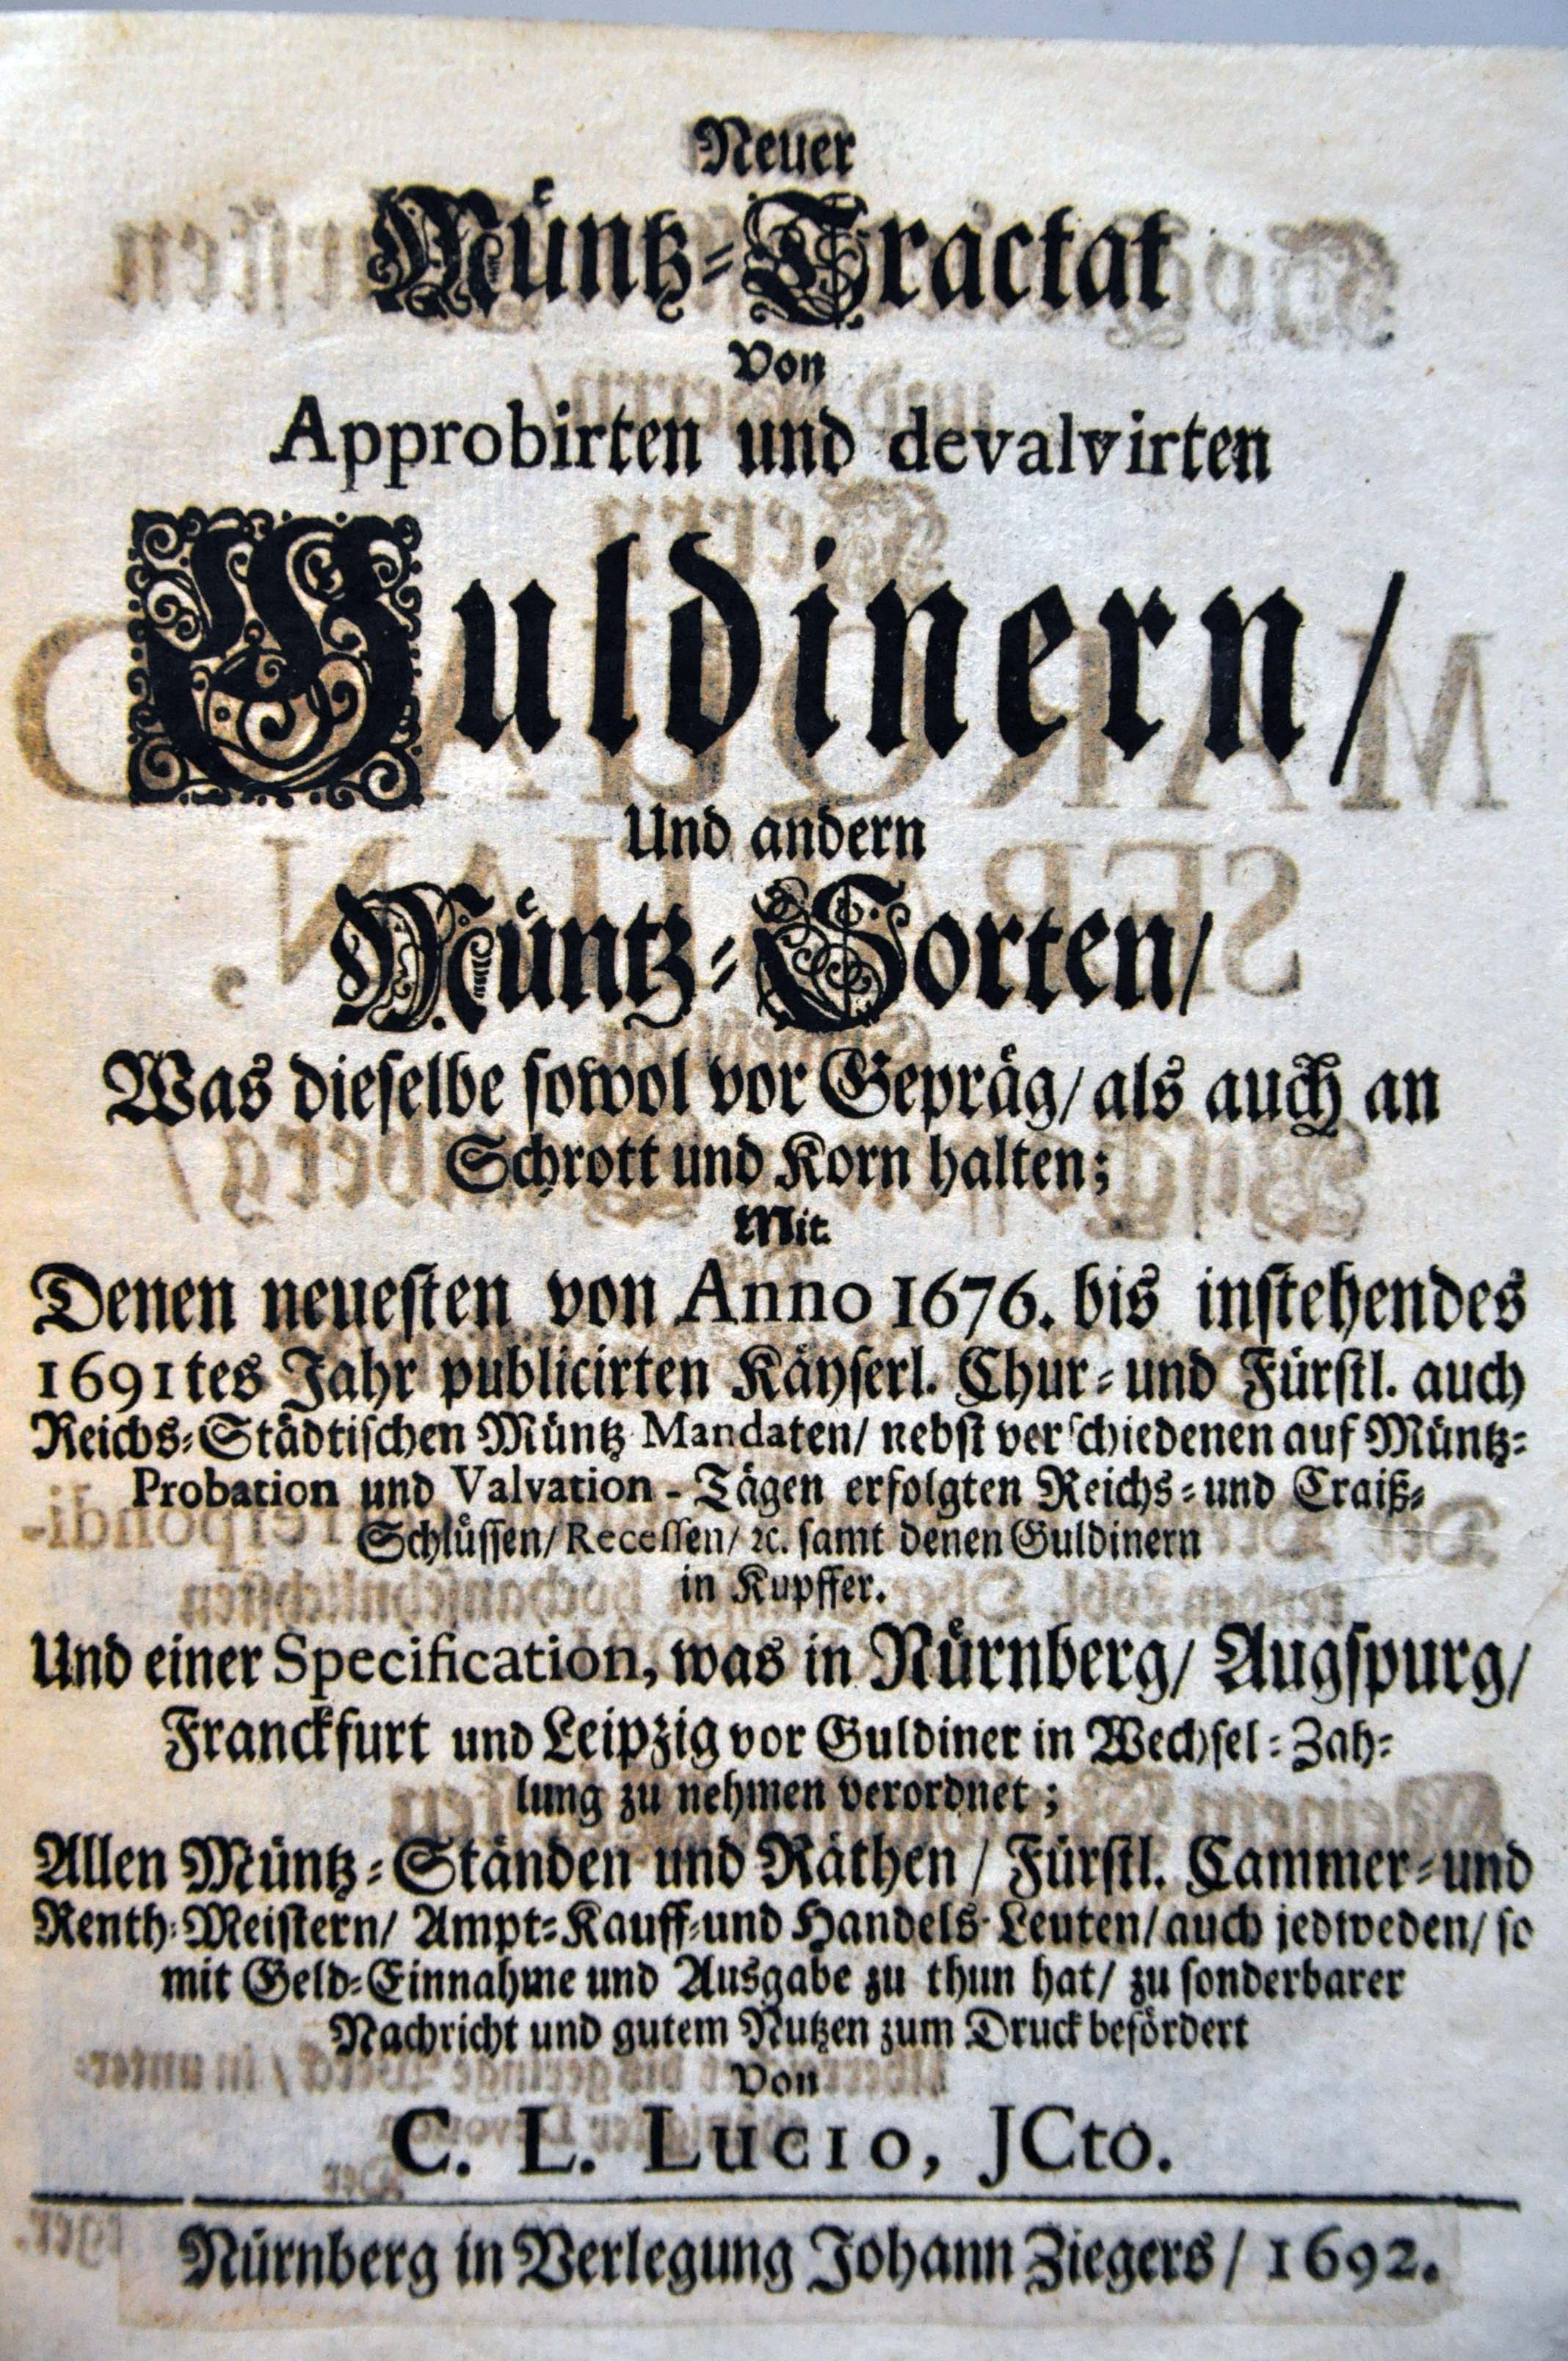 Neuer
Müntz-Tractat
Von
Approbirten und devalvirten
Guldinern/
Und andern
Müntz-Sorten/
Was dieselbe sowol vor Gepräg/ als auch an
Schrott und Korn halten;
Mit
Denen neuesten von Anno 1676. bis instehendes
1691tes Jahr publicirten Käyserl. Chur- und Fürstl. auch
Reichs-Städtischen Müntz Mandaten/ nebst verschiedenen auf Müntz-
Probation und Valvation-Tägen erfolgten Reichs- und Craiß-
Schlüssen/ Recessen/ ꝛc. samt denen Guldinern
in Kupffer.
Und einer Specification, was in Nürnberg/ Augspurg/
Franckfurt und Leipzig vor Guldiner in Wechsel-Zah-
lung zu nehmen verordnet;
Allen Müntz-Ständen und Räthen/ Fürstl. Cammer- und
Renth-Meistern/ Ampt-Kauff- und Handels-Leuten/ auch jedweden/ so
mit Geld-Einnahme und Ausgabe zu thun hat/ zu sonderbarer
Nachricht und gutem Nutzen zum Druck befördert
Von
C. L. Lucio, JCto.
Nürnberg in Verlegung Johann Ziegers/ 1692.